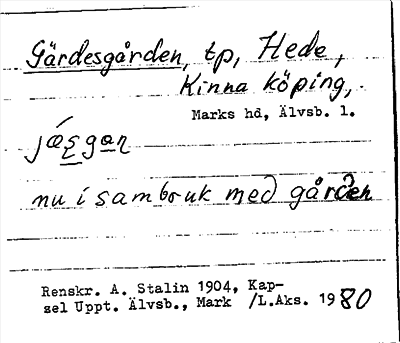 Gärdesgården, tp, Hede,
Kinna köping,
Marks hd, Älvsb. l.
jǽsgan
nu i sambruk med gården
Renskr. A. Stalin 1904, Kap-
sel Uppt. Älvsb., Mark /L.Aks. 1980